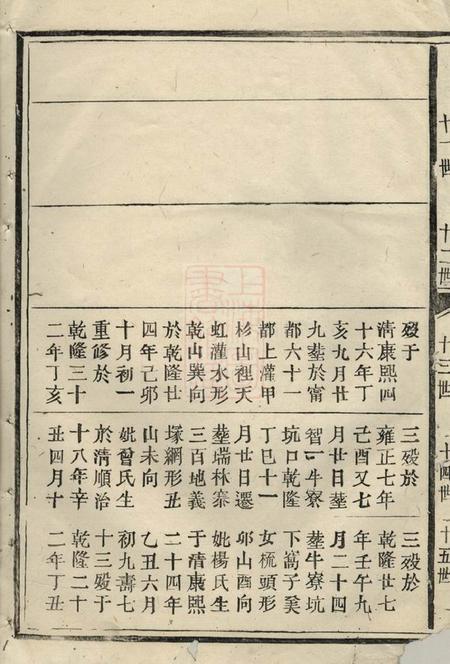 十一世
十二世
十三世
十四世
十五世
殁于
清康熙四
十六年丁
亥九月廿
九塟於甯
都六十一
都上灌甲
杉山裡天
虹灌水形
乾山巽向
於乾隆廿
四年己卯
十月初一
重修於
乾隆三十
二年丁亥
三殁於
雍正七年
己酉又七
月廿日塟
智一牛寮
坑口乾隆
丁巳十一
月廿日遷
塟瑞林寨
三百地義
塚網形丑
山未向
妣曾氏生
於清順治
十八年辛
丑四月十
三殁於
乾隆廿七
年壬午九
月二十四
塟牛寮坑
下篙子
女梳頭形
卯山酉向
妣楊氏生
于清康熙
二十四年
乙丑六月
初九壽七
十三殁于
乾隆二十
二年丁丑